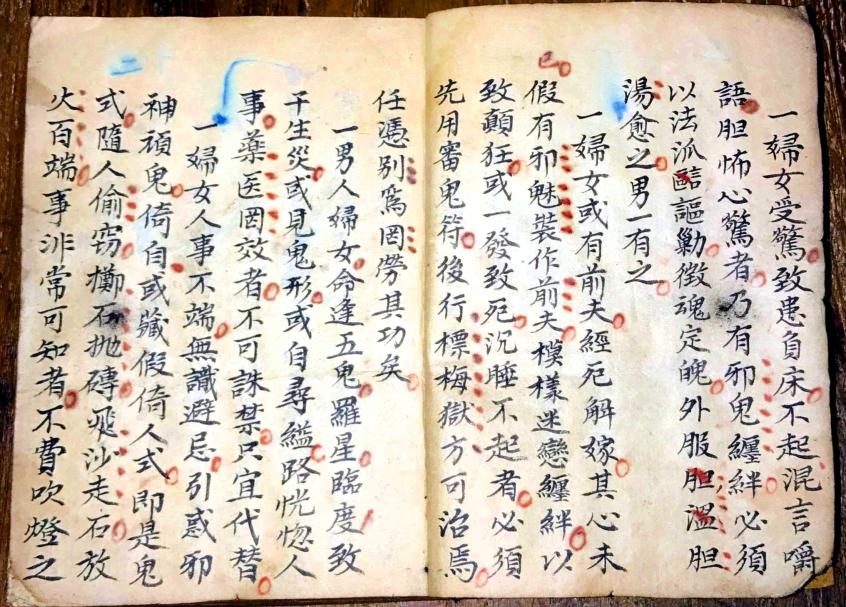 一婦女受驚致患負床不起混言嚼
語胆怖心驚者乃有邪鬼纏絆必須
以法派 謳勦徵魂定魄外服胆溫胆
湯愈之男一有之
一婦女或有前夫經死解嫁其心未
已
假有邪魅裝作前夫模樣迷戀纏絆以
致顛狂或一發致死沉睡不起者必須
先用審鬼符後行標梅獄方可治焉
任憑別爲罔勞其功矣
一男人婦女命逢五鬼羅星臨度致
干生災或見鬼形或自尋縊路恍惚人
事藥医罔效者不可誅禁只宜代替
一婦女人事不端無識避忌引惑邪
神頑鬼倚自或藏假倚人式即是鬼
二
式隨人偷窃擲石抛磚飛沙走石放
火百端事非常可知者不費吹燈之